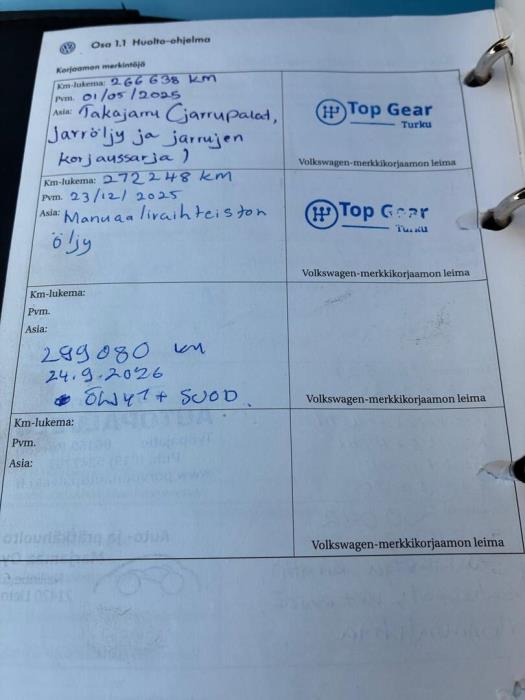 Osa 1.1 Huolto-ohjelma
Korjaamon merkintöjä
Km-lukema: 266 638 km
Pvm. 01/05/2025
Asia: Takajarru (jarrupalat,
Jarröljy ja jarrujen
korjaussarja)
Top Gear
Turku
Volkswagen-merkkikorjaamon leima
Km-lukema: 272248 km
Pvm. 23/12/2025
Asia: Manuaaliraihteiston
öljy
Top Gear
Turku
Volkswagen-merkkikorjaamon leima
Km-lukema:
Pvm.
Asia:
299080 km
24.9.2026
+ SUOD.
Volkswagen-merkkikorjaamon leima
Km-lukema:
Pvm.
Asia:
Volkswagen-merkkikorjaamon leima